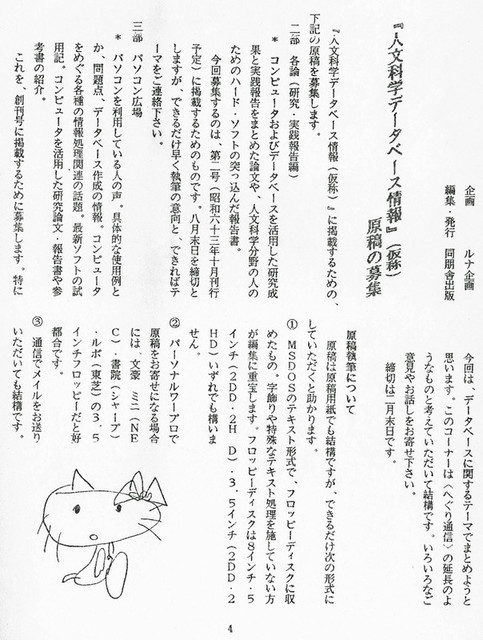 『人文科学データベース情報』(仮称)
原稿の募集
企画　ルナ企画
編集・発行　同朋舎出版
『人文科学データベース情報(仮称)』に掲載するための、
下記の原稿を募集します。
二部　各論(研究・実践報告編)
＊　コンピュータおよびデータベースを活用した研究成
果と実践報告をまとめた論文や、人文科学分野の人の
ためのハード・ソフトの突っ込んだ報告書。
今回募集するのは、第二号(昭和六十三年十月刊行
予定)に掲載するためのものです。八月末日を締切と
しますが、できるだけ早く執筆の意向と、できればテ
ーマをご連絡下さい。
三部　パソコン広場
＊　パソコンを利用している人の声。具体的な使用例と
か、問題点、データベース作成の情報。コンピュータ
をめぐる各種の情報処理関連の話題。最新ソフトの試
用記。コンピュータを活用した研究論文・報告書や参
考書の紹介。
これを、創刊号に掲載するために募集します。特に
今回は、データベースに関するテーマでまとめようと
思います。このコーナーは〈へぐり通信〉の延長のよ
うなものと考えていただいて結構です。いろいろなご
意見やお話しをお寄せ下さい。
締切は二月末日です。
原稿執筆について
原稿は原稿用紙でも結構ですが、できるだけ次の形式に
していただくと助かります。
①　ＭＳＤＯＳのテキスト形式で、フロッピーディスクに収
めたもの。字飾りや特殊なテキスト処理を施していない方
が編集に重宝します。フロッピーディスクは８インチ・５
インチ(２ＤＤ・２ＨＤ)・３.５インチ(２ＤＤ・２
ＨＤ)いずれでも構いま
せん。
②　パーソナルワープロで
原稿をお寄せになる場合
には　文豪　ミニ(ＮＥ
Ｃ)・書院(シャープ)
・ルポ(東芝)の３.５
インチフロッピーだと好
都合です。
③　通信でメイルをお送り
いただいても結構です。
4